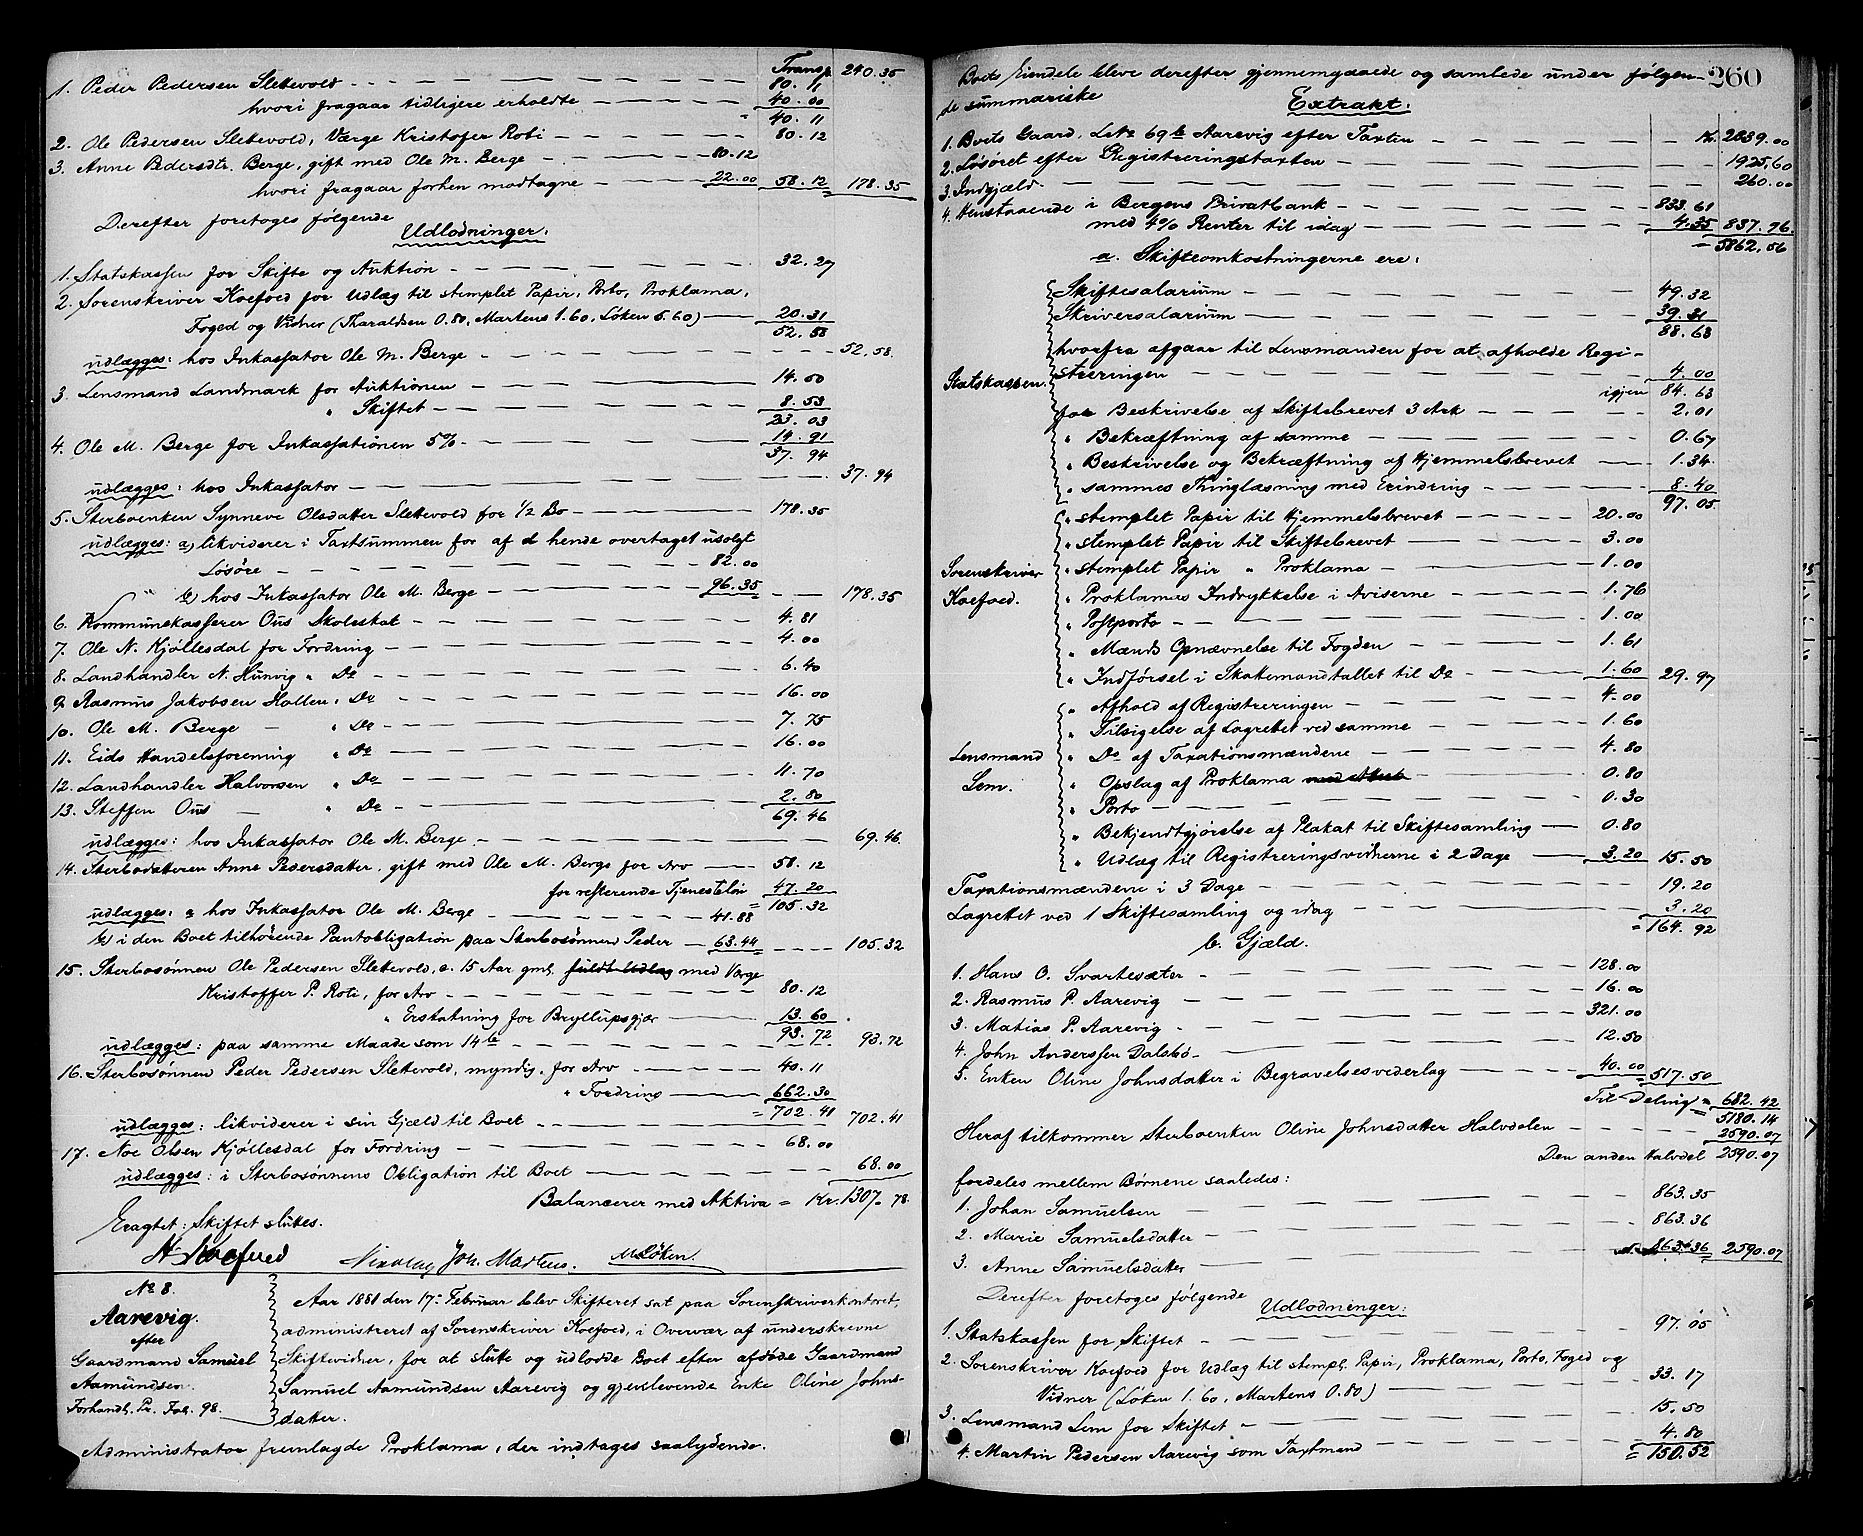 Transp. 240.35
1. Peder Pedersen Slettevold - - 80.11
hvori fragaar tidligere erholdte - 40.00
" 40.11
2. Ole Pedersen Slettevold, Værge Kristofer Roti - 80.12
3. Anne Pedersdtr. Berge, gift med Ole M. Berge - 80.12
hvori fragaar forhen modtagne - 22.00 58.12 178.35
Derefter foretoges følgende
Udlodninger:
1. Statskassen for Skifte og Auktion - 32.27
2. Sorenskriver Koefoed for Udlæg til stemplet Papir, Porto, Proklama,
Foged og Vidner (Haraldsen 0.80, Martens 1.60, Løken 5.60) - 20.31
52.58
udlægges: hos Inkassator Ole M. Berge - 52.58
3. Lensmand Landmark for Auktionen - 14.50
" Skiftet - 8.53
23.03
4. Ole M. Berge for Inkassationen 5% - 14.91
37.94
udlægges: hos Inkassator - 37.94
5. Sterboenken Synneve Olsdatter Slettevold for 1/2 Bo - 178.35
udlægges: a, likviderer i Taxtsummen for af hende overtaget usolgt
Løsøre - 82.00
b) hos Inkassator Ole M. Berge - 96.35 - 178.35
6. Kommunekasserer Ous Skoleskat - 4.81
7. Ole N. Kjøllesdal for Fordring - 4.00
8. Landhandler N. Hunvig " Do - 6.40
9. Rasmus Jakobsen Hollen, Do - 16.00
10. Ole M. Berge - " Do - 7.75
11. Eids Handelsforening " Do - 16.00
12. Landhandler Halvorsen " Do - 11.70
13. Steffen Ous - " Do - 2.80
69.46
udlægges: hos Inkassator Ole M. Berge - 69.46
14. Sterbodatteren Anne Pedersdatter, gift med Ole M. Berge for Arv - 58.12
for resterende Tjenesteløn 47.20
= 105.32
udlægges: a hos Inkassator Ole M. Berge - 41.88
b) i den Boet tilhørende Pantobligation paa Sterbosønnen Peder - 63.44 - 105.32
15. Sterbosønnen Ole Pedersen Slettevold, c. 15 Aar gml. fuldt Udlæg med Værge
Kristoffer P. Roti, for Arv - 80.12
" Erstatning for Bryllupsgjær - 13.60
93.72
udlægges: paa samme Maade som 14 b - 93.72
16. Sterbosønnen Peder Pedersen Slettevold, myndig, for Arv - 40.11
" Fordring - 662.30
= 702.41
udlægges: likviderer i sin Gjæld til Boet - 702.41
17. Noe Olsen Kjøllesdal for Fordring - 68.00
udlægges: i Sterbosønnens Obligation til Boet - 68.00
Balancerer med Aktiva = Kr. 1307.78
Eragtet: Skiftet sluttes.
H. Koefoed Nikolay Joh. Martens. M. Løken.
No 8.
Aarevig.
efter
Gaardmand Samuel
Aamundsen.
Forhandl. Pr. Fol. 98.
Aar 1881 den 17de Februar blev Skifteret sat paa Sorenskriverkontoret,
administreret af Sorenskriver Koefoed, i Overvær af underskrevne
Skiftevidner, for at slutte og udlodde Boet efter afdøde Gaardmand
Samuel Aamundsen Aarevig og gjenlevende Enke Oline Johns-
datter.
Administrator fremlagde Proklama, der indtages saalydende.
260
Boets Eiendele bleve derefter gjennemgaaede og samlede under følgen-
de summariske
Extrakt:
1. Boets Gaard, L.No 69 b Aarevig efter Taxten - Kr. 2839.00
2. Løsøret efter Registreringstaxten - 1925.60
3. Indgjæld. - 260.00
4. Henstaaende i Bergens Privatbank - 833.61
med 4% Renter til idag - 4.35 837.96
= 5862.56
a. Skifteomkostningerne ere:
Skiftesalarium - 49.32
Skriversalarium - 39.31
88.63
hvorfra afgaar til Lensmanden for at afholde Regi-
streringen - 4.00
Statskassen. igjen 84.63
for Beskrivelse af Skiftebrevet 3 Ark - 2.01
" Bekræftning af samme - 0.67
" Beskrivelse og Bekræftning af Hjemmelsbrevet - 1.34
" sammes Thinglæsning med Erindring - 8.40
97.05
" stemplet Papir til Hjemmelsbrevet - 20.00
" stemplet Papir til Skiftebrevet - 3.00
Sorenskriver " stemplet Papir " Proklama - 1.00
Koefoed. " Proklamas Indrykkelse i Aviserne - 1.76
" Postporto - 1.00
" Mænds Opnævnelse til Fogden - 1.61
" Indførsel i Skattemandtallet til Do - 1.60 29.97
" Afhold af Registreringen - 4.00
" Tilsigelse af Lagrettet ved samme - 1.60
Lensmand " Do af Taxationsmændene - 4.80
Lem. " Opslag af Proklama - 0.80
" Porto - 0.30
" Bekjendtgjørelse af Plakat til Skiftesamling - 0.80
" Udlæg til Registreringsvidnerne i 2 Dage - 3.20 15.50
Taxationsmændene i 3 Dage - 19.20
Lagrettet ved 1 Skiftesamling og idag - 3.20
= 164.92
b. Gjæld.
1. Hans O. Svartesæter - 128.00
2. Rasmus P. Aarevig - 16.00
3. Matias P. Aarevig - 321.00
4. John Anderssen Dalsbø - 12.50
5. Enken Oline Johnsdatter i Begravelsesvederlag - 40.00 517.50
= 682.42
Til Deling = 5180.14
Heraf tilkommer Sterboenken Oline Johnsdatter Halvdelen - 2590.07
Den anden Halvdel 2590.07
fordeles mellem Børnene saaledes:
1. Johan Samuelsen - 863.35
2. Marie Samuelsdatter - 863.36
3. Anne Samuelsdatter - 863.36 2590.07
Derefter foretoges følgende
Udlodninger:
1. Statskassen for Skiftet - 97.05
2. Sorenskriver Koefoed for Udlæg til stempl. Papir, Proklama, Porto, Foged og
Vidner (Løken 1.60, Martens 0.80) - 33.17
3. Lensmand Lem for Skiftet - 15.50
4. Martin Pedersen Aarevig som Taxtmand - 4.80
= 150.52